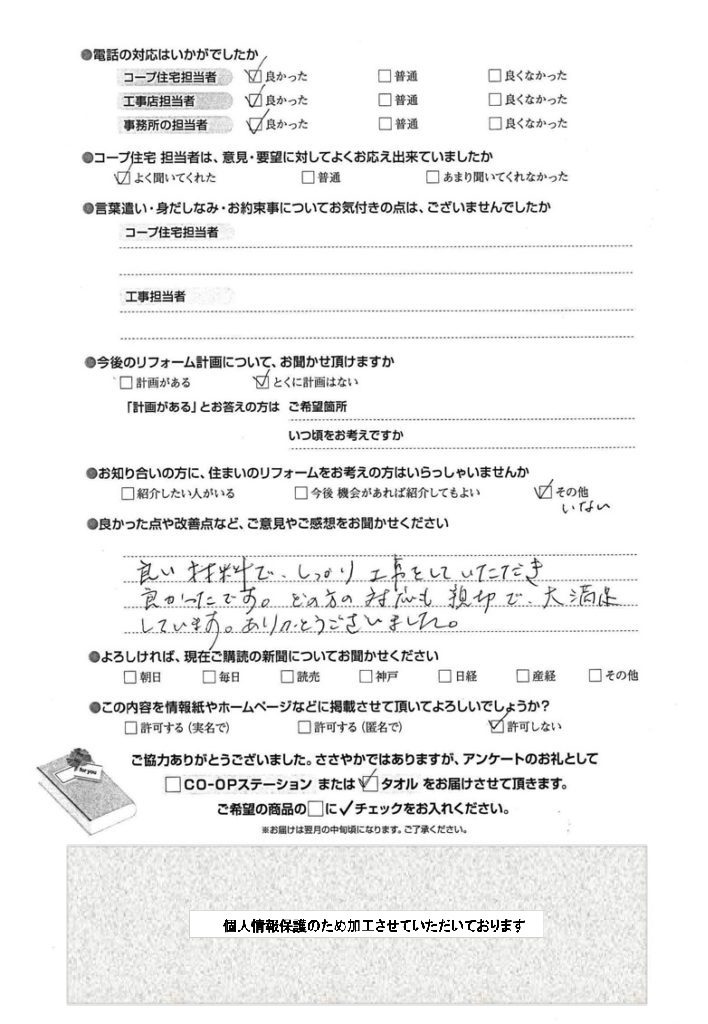 ●電話の対応はいかがでしたか
コープ住宅担当者 ☑良かった □普通 □良くなかった
工事店担当者 ☑良かった □普通 □良くなかった
事務所の担当者 ☑良かった □普通 □良くなかった
●コープ住宅 担当者は、意見・要望に対してよくお応え出来ていましたか
☑よく聞いてくれた □普通 □あまり聞いてくれなかった
●言葉遣い・身だしなみ・お約束事についてお気付きの点は、ございませんでしたか
コープ住宅担当者
工事担当者
●今後のリフォーム計画について、お聞かせ頂けますか
□計画がある ☑とくに計画はない
「計画がある」とお答えの方は ご希望箇所
いつ頃をお考えですか
●お知り合いの方に、住まいのリフォームをお考えの方はいらっしゃいませんか
□紹介したい人がいる □今後 機会があれば紹介してもよい ☑その他
いない
●良かった点や改善点など、ご意見やご感想をお聞かせください
良い材料で、しっかり工事をしていただき
良かったです。どの方の対応も親切で、大満足
しています。ありがとうございました。
●よろしければ、現在ご購読の新聞についてお聞かせください
□朝日 □毎日 □読売 □神戸 □日経 □産経 □その他
●この内容を情報紙やホームページなどに掲載させて頂いてよろしいでしょうか?
□許可する(実名で) □許可する(匿名で) ☑許可しない
for you
ご協力ありがとうございました。ささやかではありますが、アンケートのお礼として
□CO-OPステーション または ☑タオル をお届けさせて頂きます。
ご希望の商品の□に✓チェックをお入れください。
※お届けは翌月の中旬頃になります。ご了承ください。
個人情報保護のため加工させていただいております